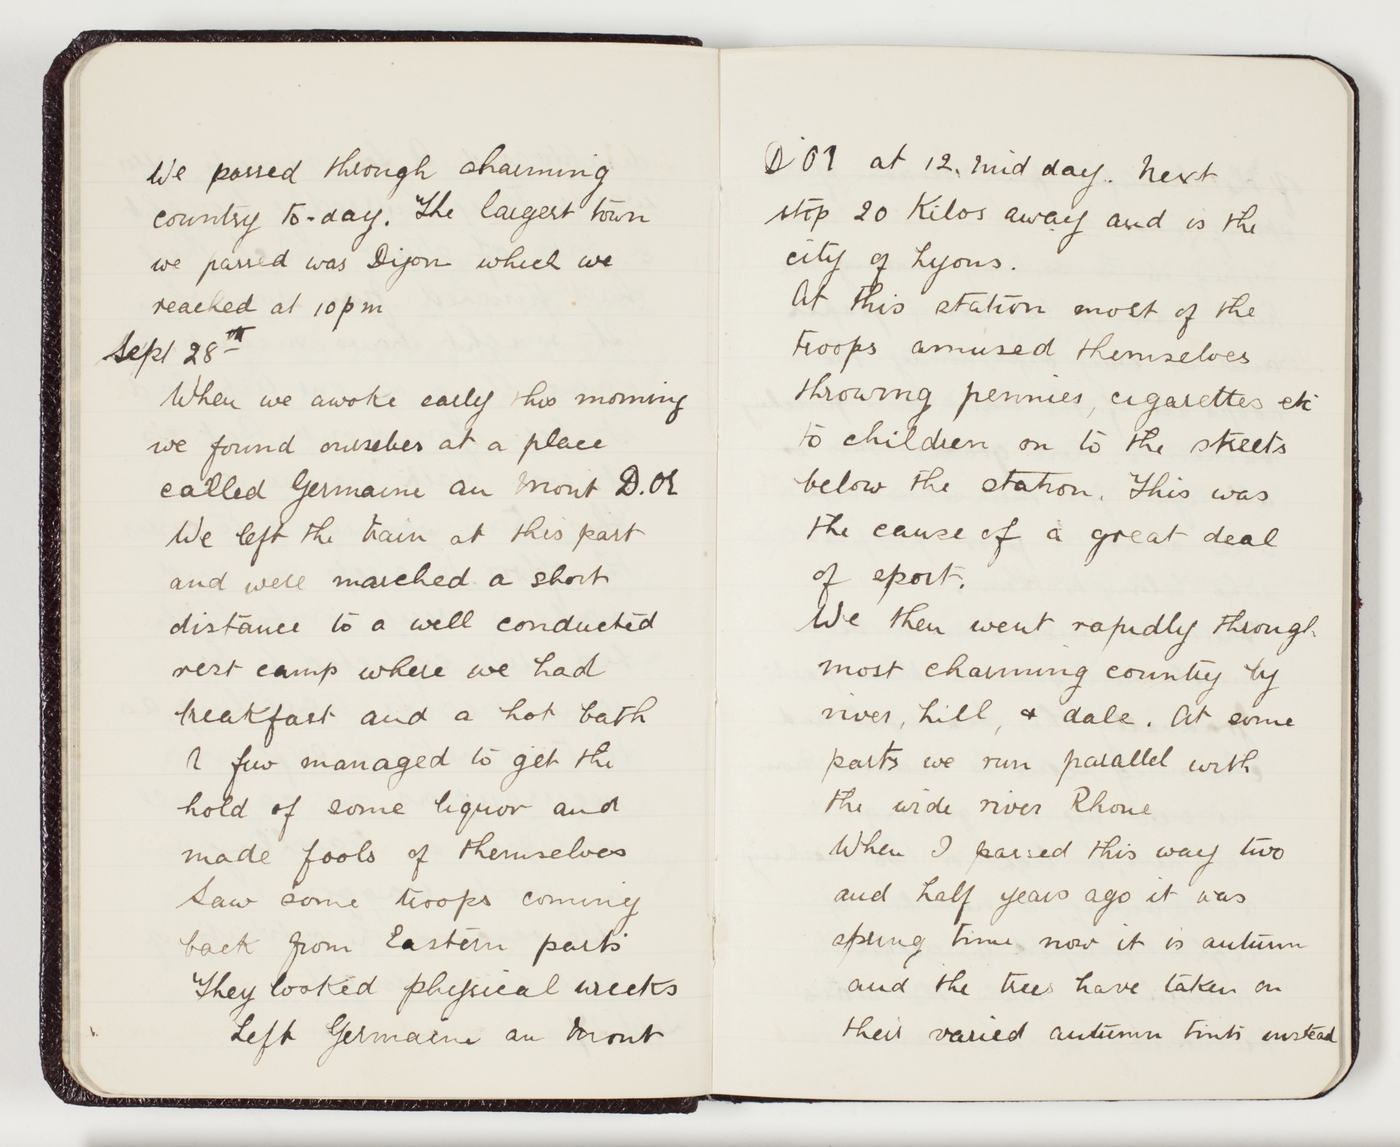 We passed through charming
country to-day. The largest town
we passed was Dijon which we
reached at 10 pm
Sept 28th
When we awoke early this morning
we found ourselves at a place
called Germaine au Mont D.Or
We left the train at this part
and were marched a short
distance to a well conducted
rest camp where we had
breakfast and a hot bath
A few managed to get the
hold of some liquor and
made fools of themselves
Saw some troops coming
back from Eastern parts
They looked physical wrecks
Left Germaine au Mont
D'Or at 12. mid day. Next
stop 20 Kilos away and is the
city of Lyons.
At this station most of the
troops amused themselves
throwing pennies, cigarettes etc
to children on to the streets
below the station. This was
the cause of a great deal
of sport.
We then went rapidly through
most charming country by
river, hill, & dale. At some
parts we run parallel with
the wide river Rhone
When I passed this way two
and half years ago it was
spring time now it is autumn
and the trees have taken on
their varied autumn tints instead